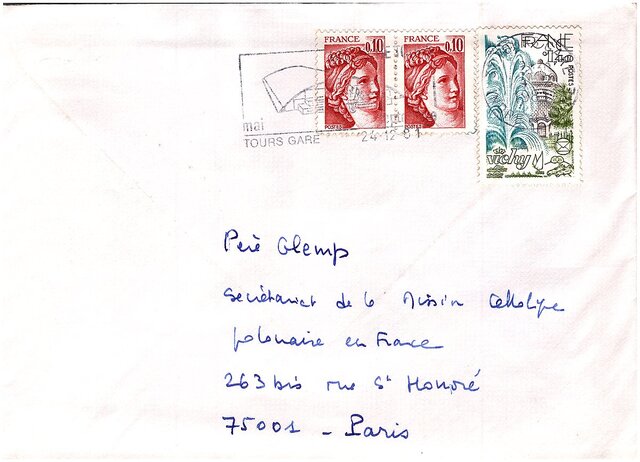 FRANCE 0,10
FRANCE 0,10
POSTES
POSTES
FRANCE
vichy
mai
TOURS GARE
24-12 81
Père Glemp
Secrétariat de la Mission Catholique
polonaise en France
263 bis rue St Honoré
75001 - Paris